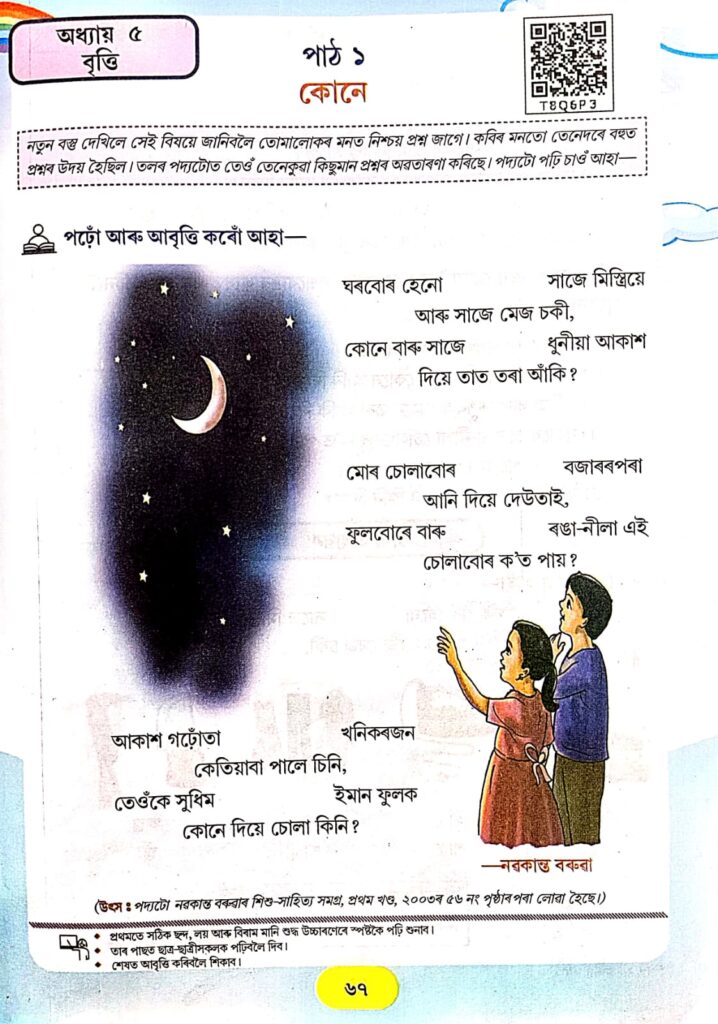 অধ্যায় ৫
বৃত্তি
পাঠ ১
কোনে
T8Q6P3
নতুন বস্তু দেখিলে সেই বিষয়ে জানিবলৈ তোমালোকৰ মনত নিশ্চয় প্ৰশ্ন জাগে। কবিৰ মনতো তেনেদৰে বহুত
প্ৰশ্নৰ উদয় হৈছিল। তলৰ পদ্যটোত তেওঁ তেনেকুৱা কিছুমান প্ৰশ্নৰ অৱতাৰণা কৰিছে। পদ্যটো পঢ়ি চাওঁ আহা—
পঢ়োঁ আৰু আবৃত্তি কৰোঁ আহা—
ঘৰবোৰ হেনো সাজে মিস্ত্ৰিয়ে
আৰু সাজে মেজ চকী,
কোনে বাৰু সাজে ধুনীয়া আকাশ
দিয়ে তাত তৰা আঁকি?
মোৰ চোলাবোৰ বজাৰৰপৰা
আনি দিয়ে দেউতাই,
ফুলবোৰে বাৰু ৰঙা-নীলা এই
চোলাবোৰ ক'ত পায়?
আকাশ গঢ়োঁতা খনিকৰজন
কেতিয়াবা পালে চিনি,
তেওঁকে সুধিম ইমান ফুলক
কোনে দিয়ে চোলা কিনি?
—নৱকান্ত বৰুৱা
(উৎস : পদ্যটো নৱকান্ত বৰুৱাৰ শিশু-সাহিত্য সমগ্ৰ, প্ৰথম খণ্ড, ২০০৩ৰ ৫৬ নং পৃষ্ঠাৰপৰা লোৱা হৈছে।)
• প্ৰথমতে সঠিক ছন্দ, লয় আৰু বিৰাম মানি শুদ্ধ উচ্চাৰণেৰে স্পষ্টকৈ পঢ়ি শুনাব।
• তাৰ পাছত ছাত্ৰ-ছাত্ৰীসকলক পঢ়িবলৈ দিব।
• শেষত আবৃত্তি কৰিবলৈ শিকাব।
৬৭